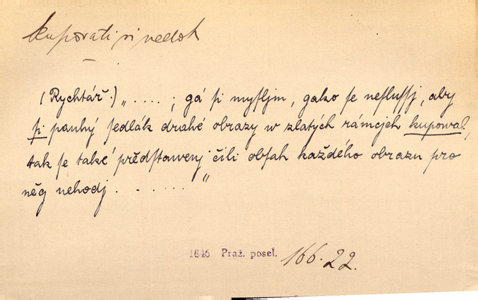 kupovati si nedok
(Rychtář:) „ . . . . ; gá si mysljm, gako se neslussj, aby
si pauhý sedlák drahé obrazy w zlatých rámcjch kupowal,
tak se také předstawenj čili obsah každého obrazu pro
něg nehodj . . . . . . . "
1846 Praž. posel. 166.22.